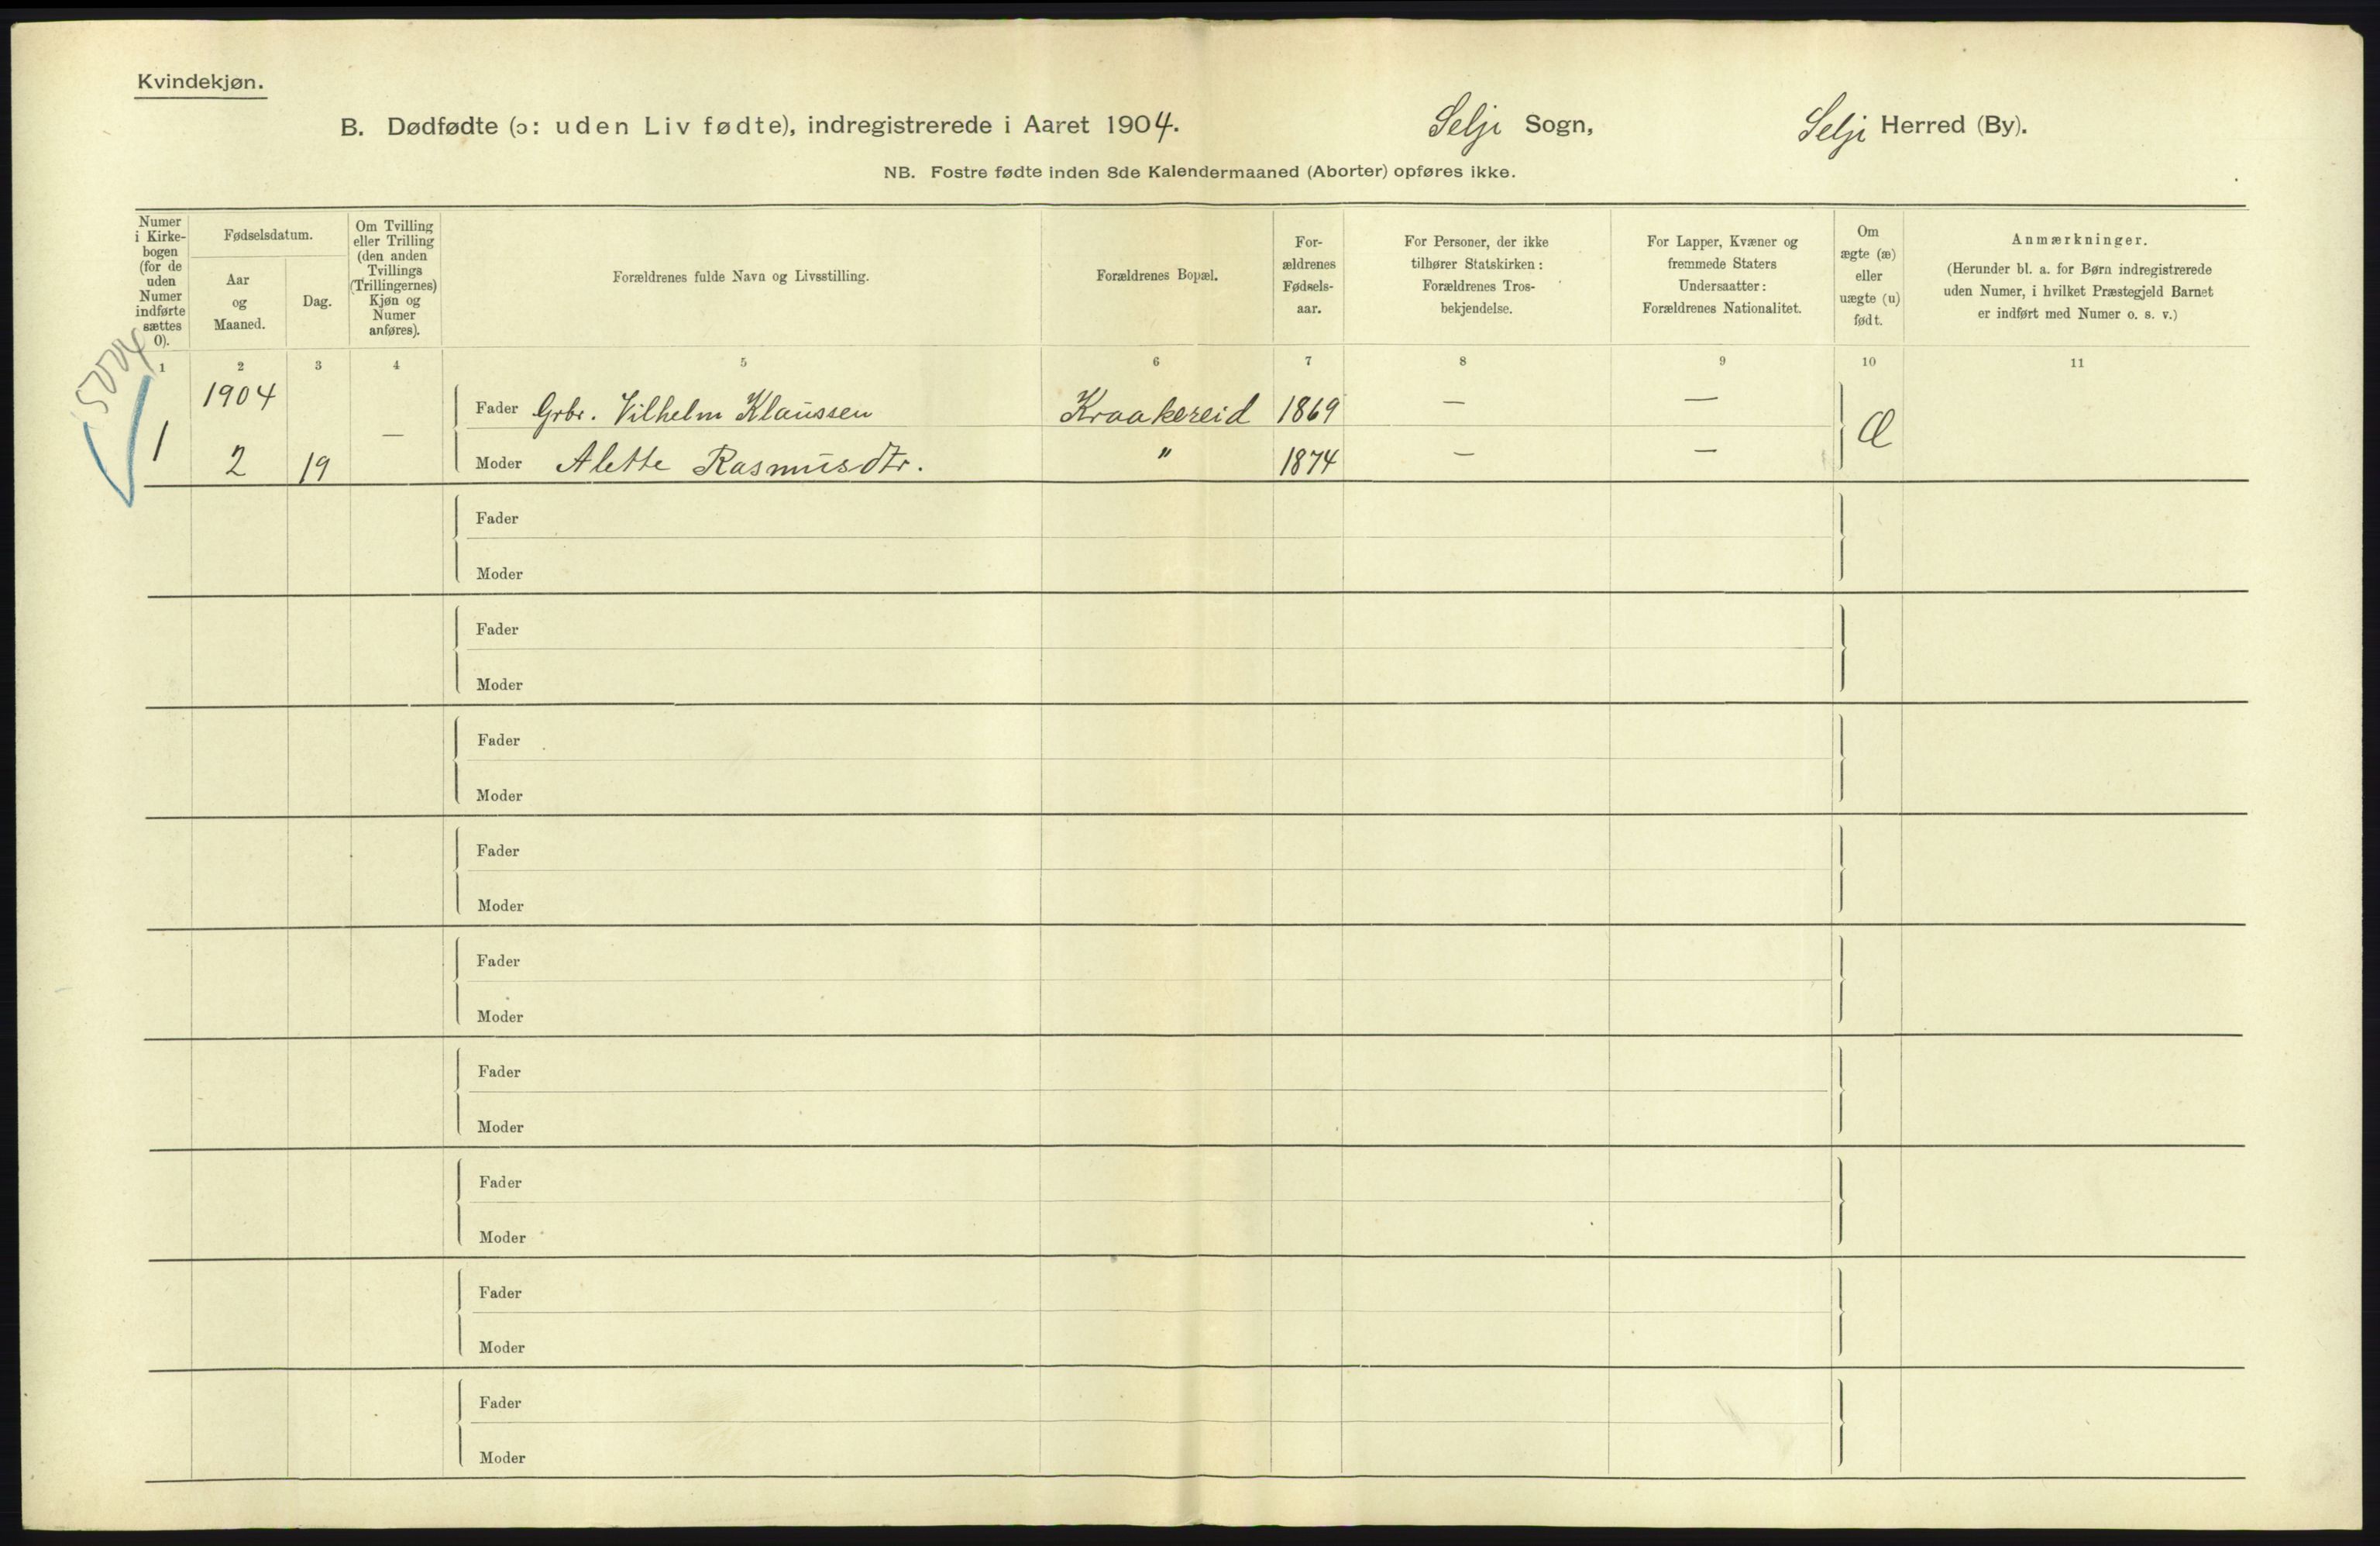 Kvindekjøn.
B. Dødfødte (ɔ: uden Liv fødte), indregistrerede i Aaret 1904. Selje Sogn, Selje Herred (By).
NB. Fostre fødte inden 8de Kalendermaaned (Aborter) opføres ikke.
Numer
i Kirke-
bogen
(for de
uden
Numer
indførte
sættes
0).
Fødselsdatum.
Aar
og
Maaned.
Dag.
Om Tvilling
eller Trilling
(den anden
Tvillings
(Trillingernes)
Kjøn og
Numer
anføres).
Forældrenes fulde Navn og Livsstilling.
Forældrenes Bopæl.
For-
ældrenes
Fødsels-
aar.
For Personer, der ikke
tilhører Statskirken:
Forældrenes Tros-
bekjendelse.
For Lapper, Kvæner og
fremmede Staters
Undersaatter:
Forældrenes Nationalitet.
Om
ægte (æ)
eller
uægte (u)
født.
Anmærkninger.
(Herunder bl. a. for Børn indregistrerede
uden Numer, i hvilket Præstegjeld Barnet
er indført med Numer o. s. v.)
1 2 3 4 5 6 7 8 9 10 11
1904 Fader Grbr. Vilhelm Klaussen Kraakereid 1869 — —
1 2 19 — Moder Alette Rasmusdtr. " 1874 — — Æ
Fader
Moder
Fader
Moder
Fader
Moder
Fader
Moder
Fader
Moder
Fader
Moder
Fader
Moder
Fader
Moder
Fader
Moder